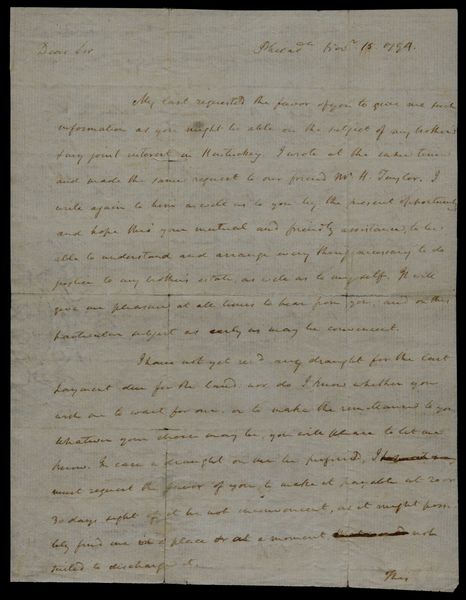 Dear Sir
Philad.a Nov.r 15. 1794.
My last requested the favor of you to give me such
information as you might be able on the subject of my brothers
& my joint interest in Kentuckey. I wrote at the same time
and made the same request to our friend Mr H. Taylor. I
write again to him as well as to you by the present opportunity
and hope thro' your mutual and friendly assistance, to be
able to understand and arrange every thing necessary to do
justice to my brothers estate, as well as to myself. It will
give me pleasure at all times to hear from you, and on this
particular subject as early as may be convenient.
I have not yet recd any draught for the last
payment due for the land, nor do I know whether you
wish me to wait for one, or to make the remittance to you
Whatever your choice may be, you will please to let me
know. In case a draught on me be preferred, I
must request the favor of you, to make it payable at 20 or
30 days sight if it be not inconvenient, as it might possi
bly find me in a place or at a moment not
suited to discharge it.
The